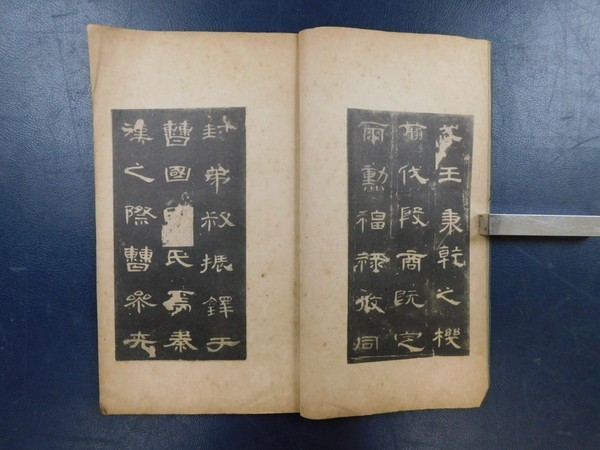 武王秉乾之機
翦伐殷商既定
爾勳福祿攸同
封弟叔振鐸于
曹國氏焉秦
漢之際曹參夾